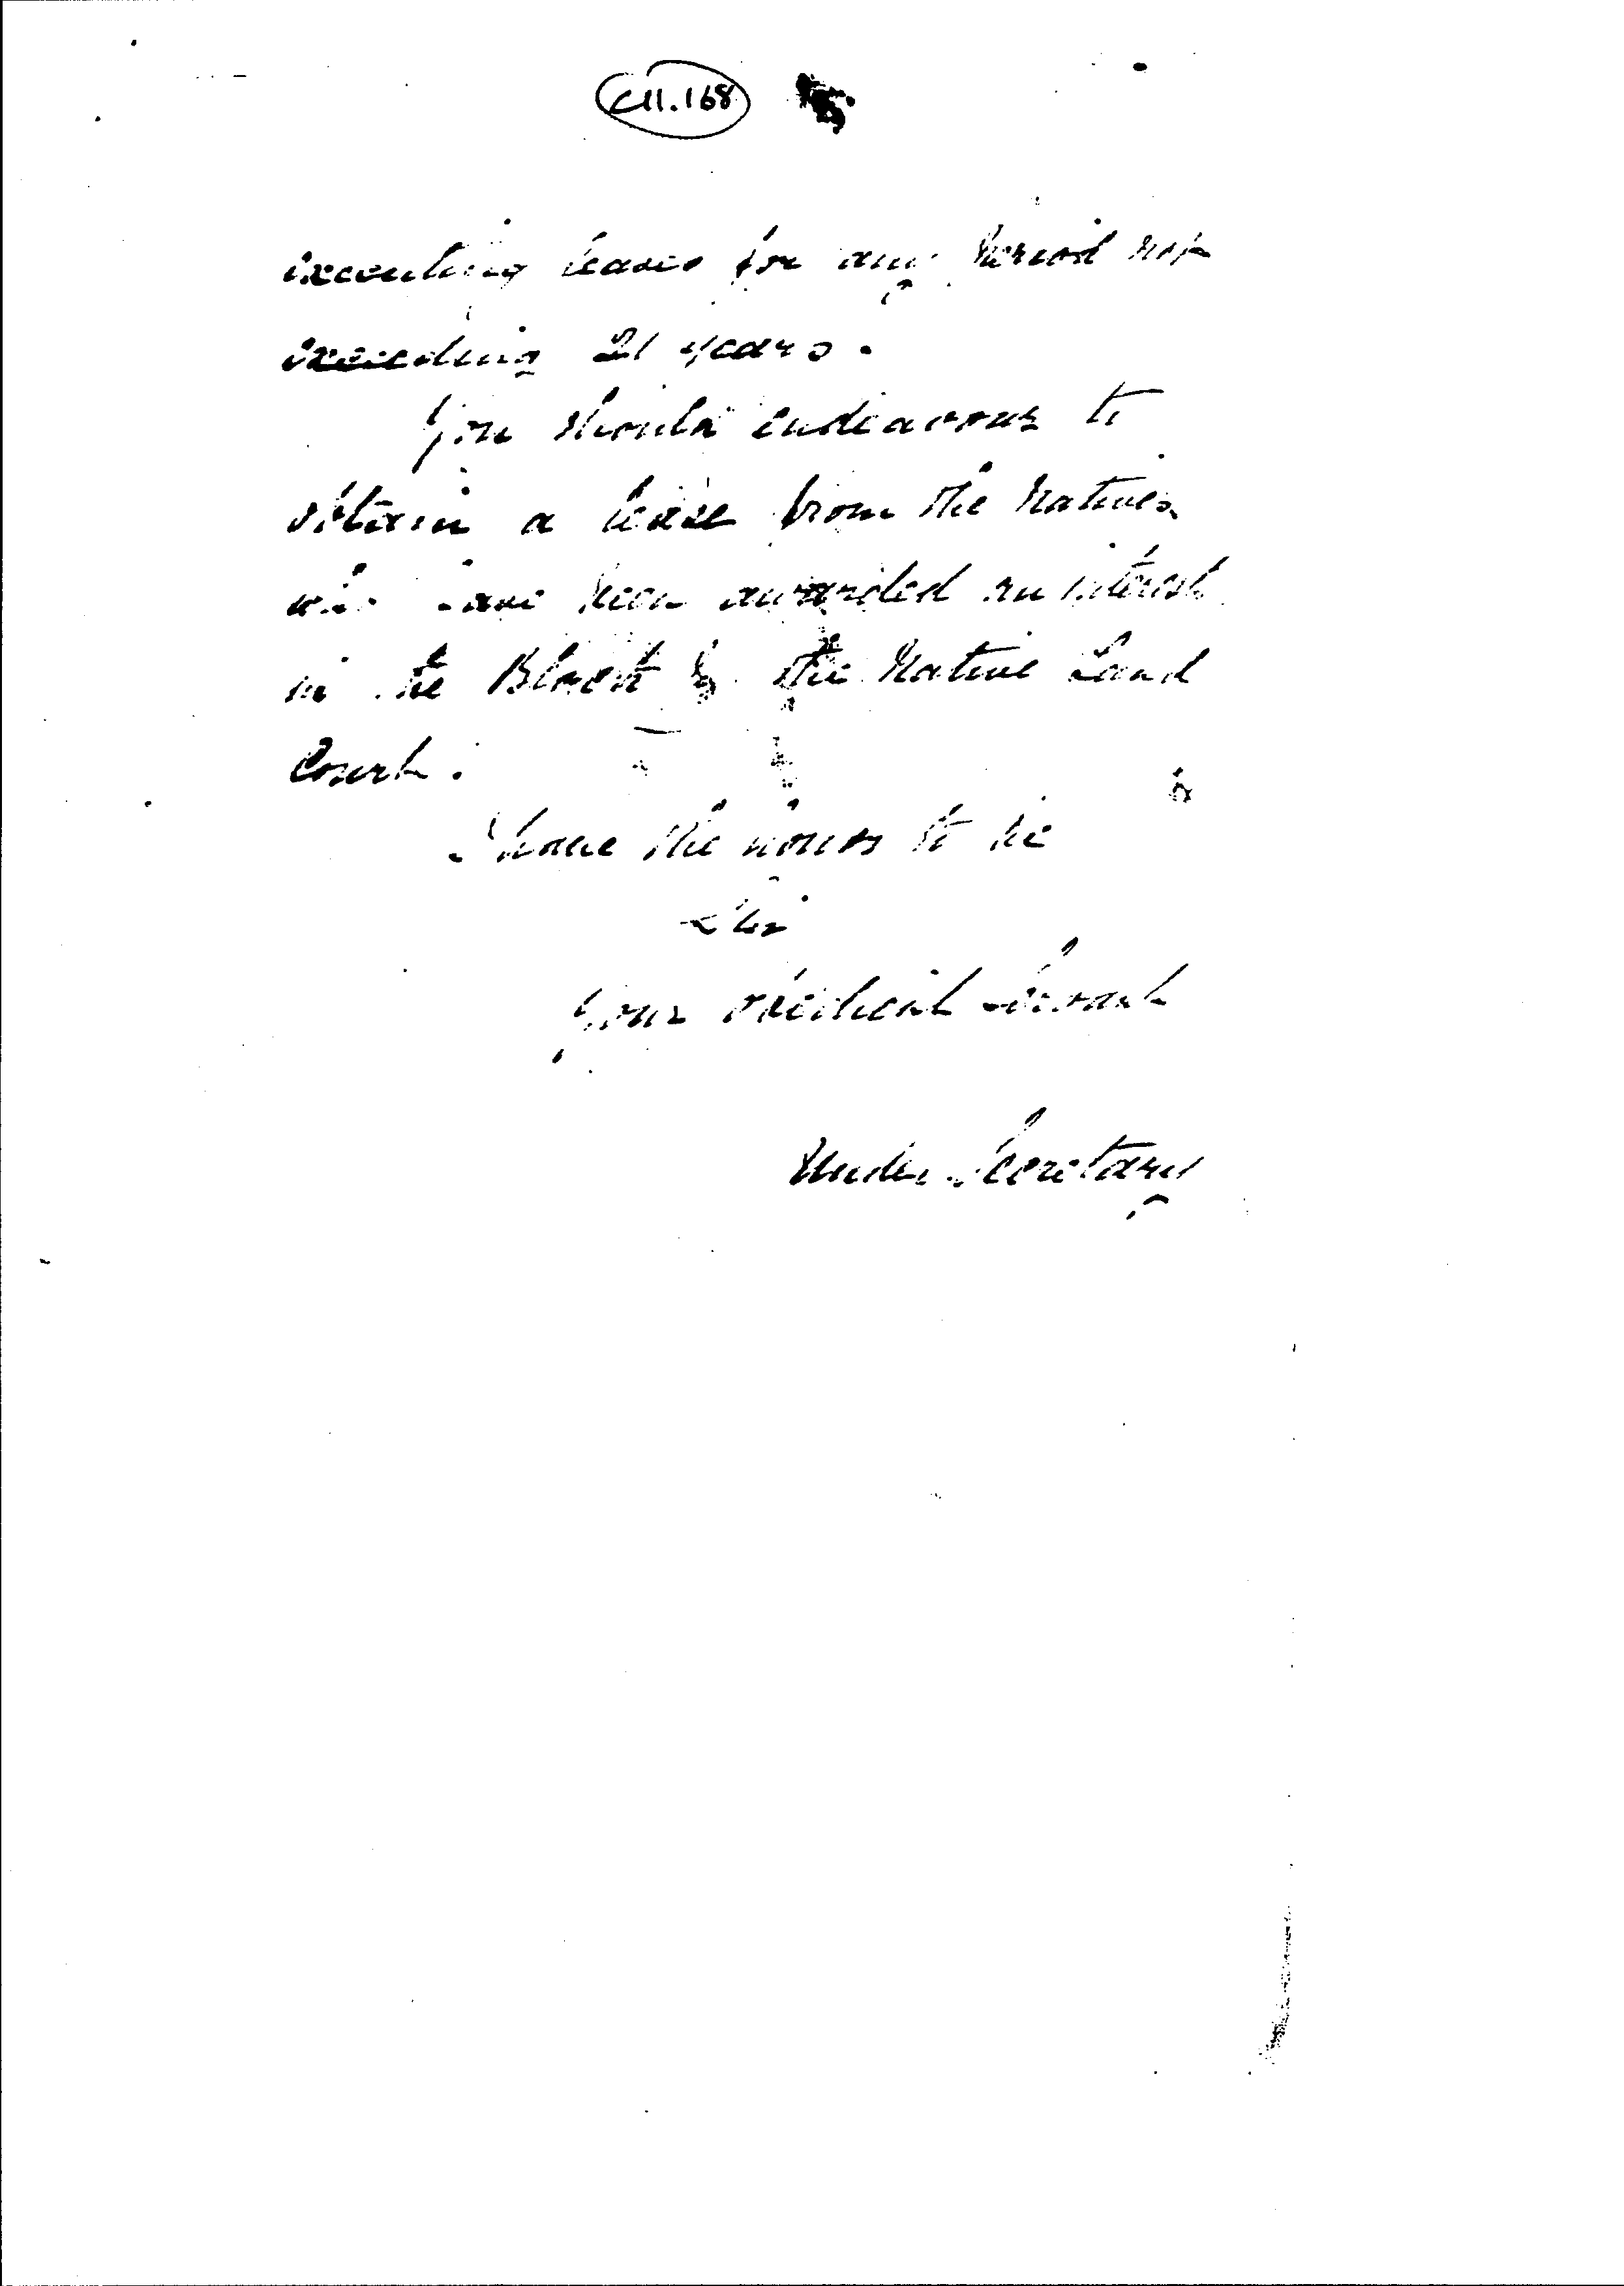 C11.168
executing leases for any period not
exceeding 21 years.
You should endeavour to
obtain a lease from the Natives
who have been awarded an interest
in the Block by the Native Land
Court.
I have the honor to be
Sir
Your obedient Servant
Under Secretary